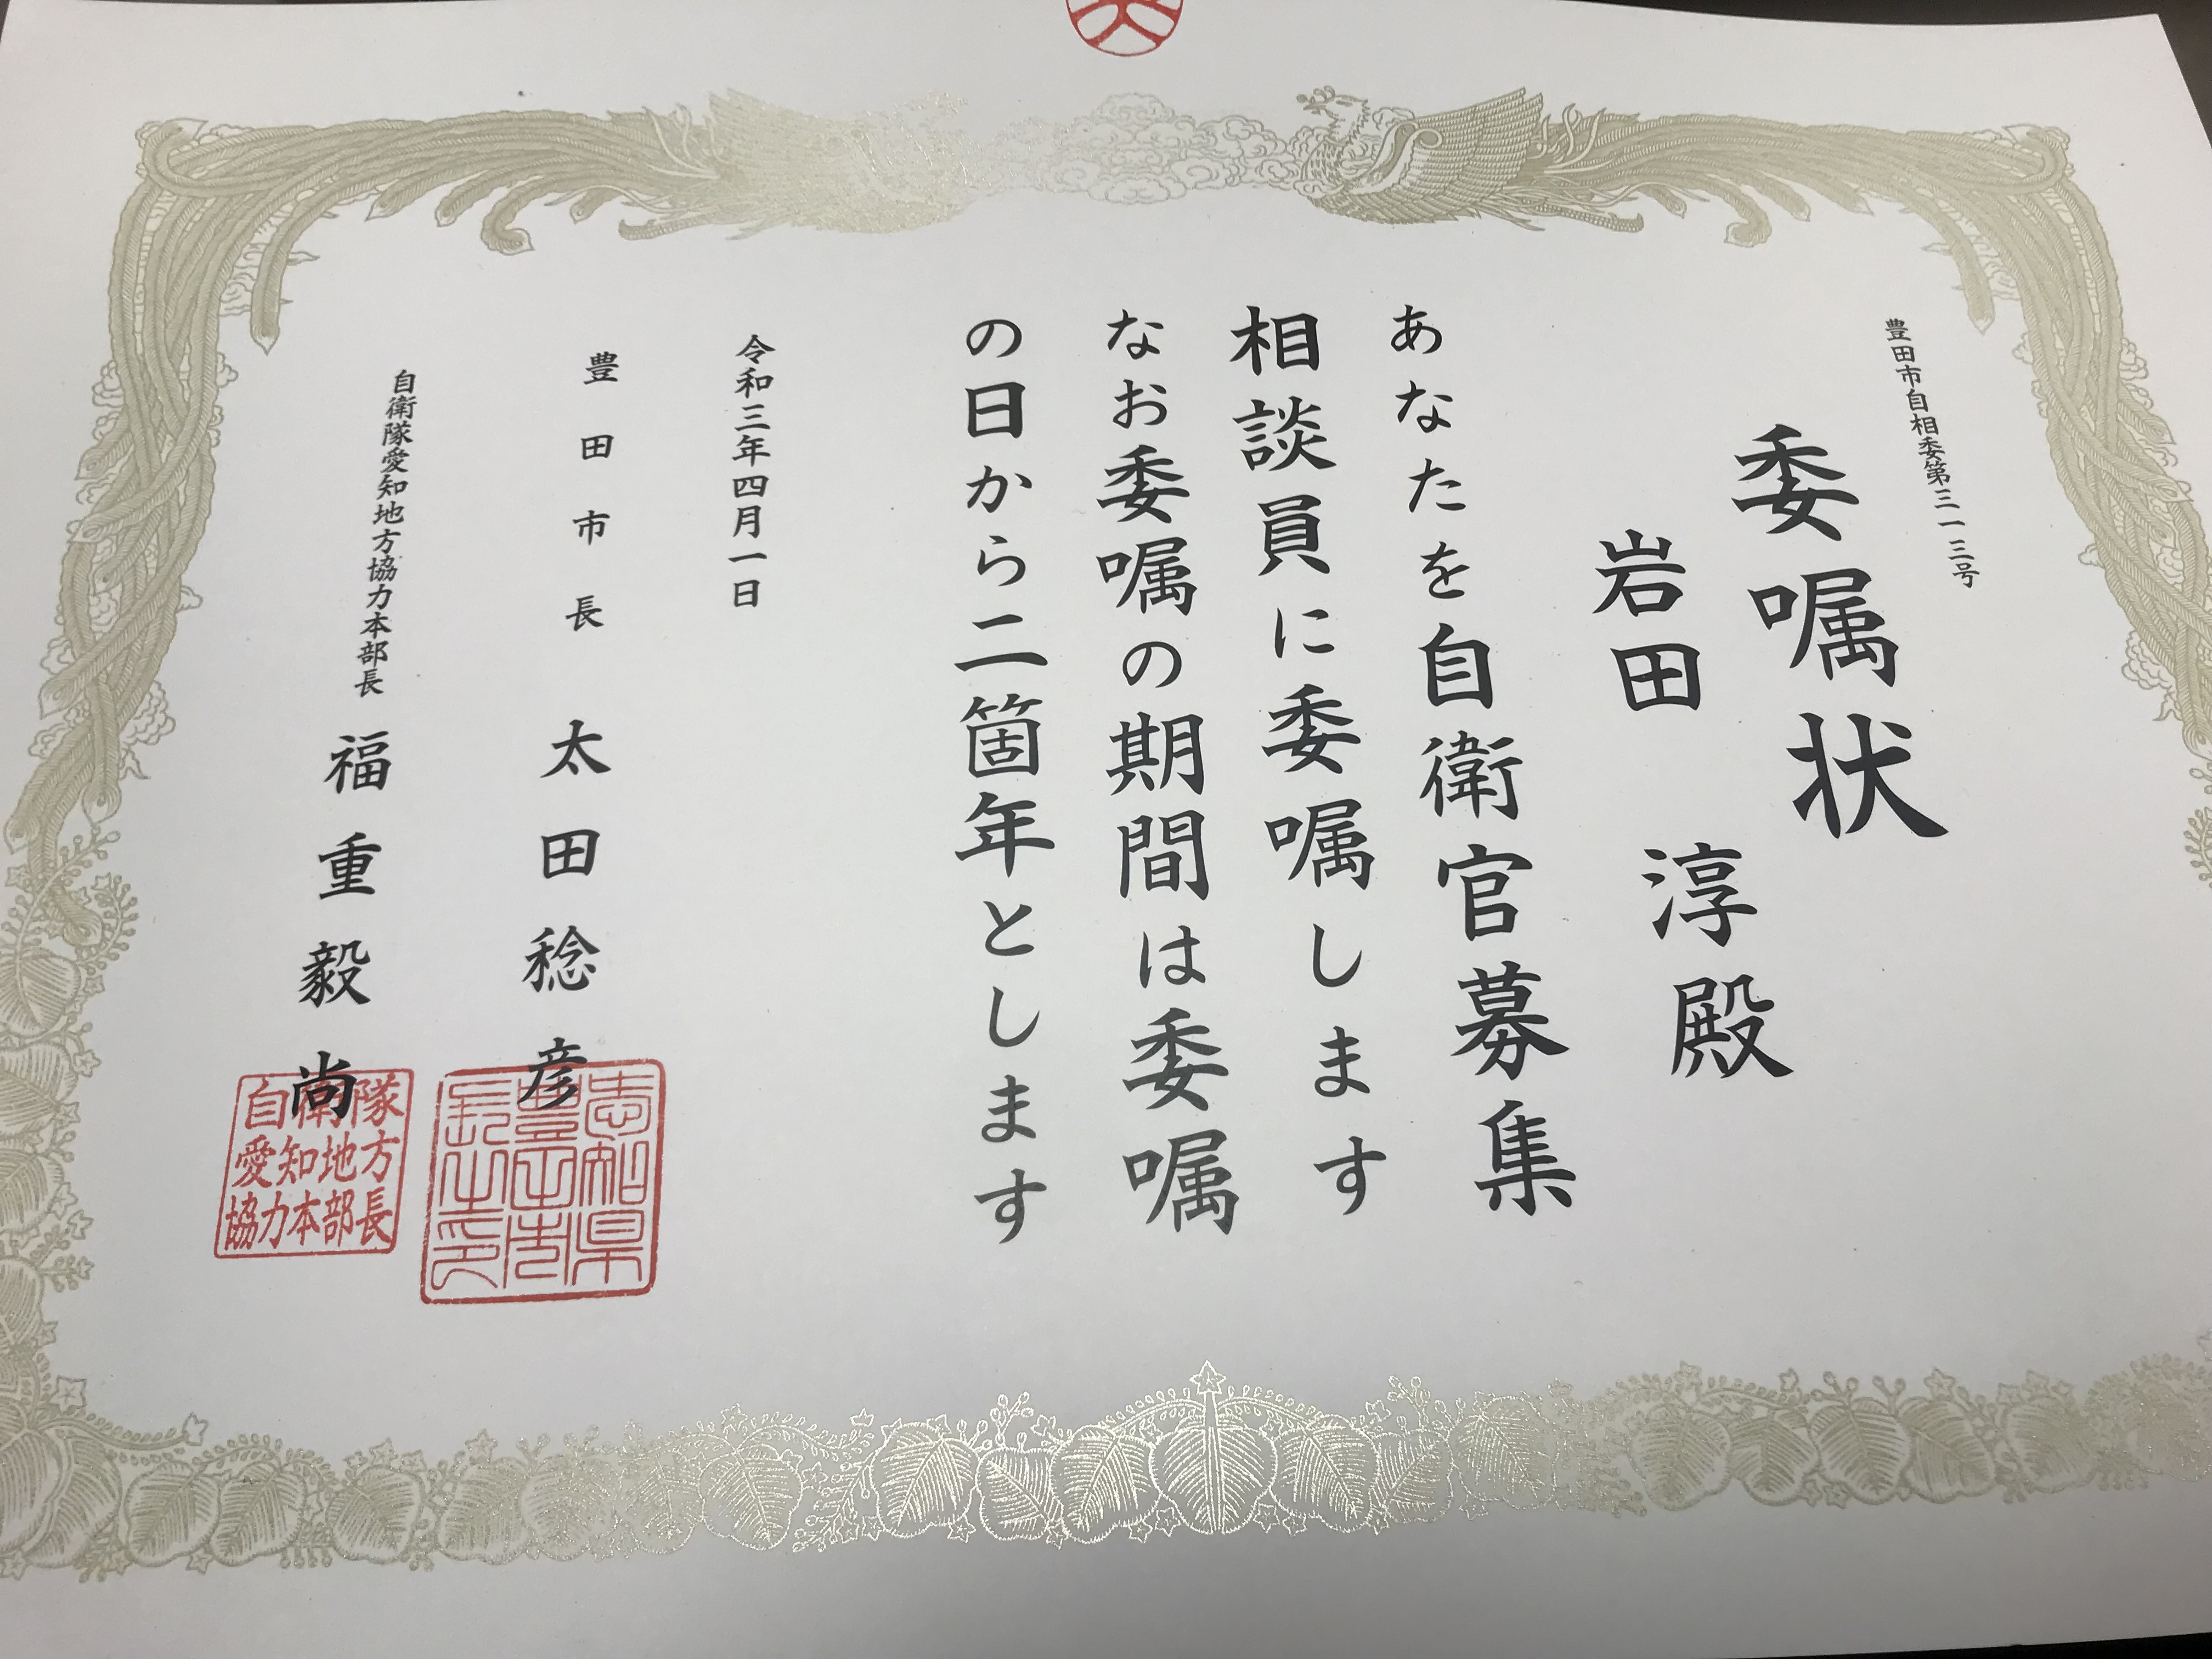 豊田市自相委第三一三号
委嘱状
岩田 淳殿
あなたを自衛官募集
相談員に委嘱します
なお委嘱の期間は委嘱
の日から二箇年とします
令和三年四月一日
豊田市長 太田稔彦
愛知県
豊田市
長之印
自衛隊愛知地方協力本部長 福重毅尚
自衛隊
愛知地方
協力本部長